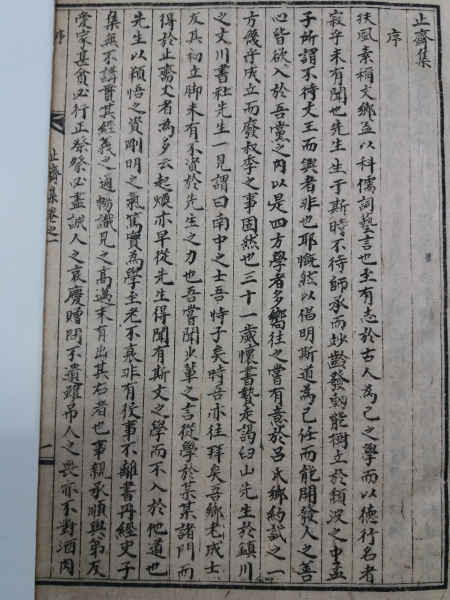 止齋集
序
扶風素稱文鄕盖以科儒詞藝言也至有志於古人爲己之學而以德行名者
寂乎未有聞也先生生于斯時不待師承而妙齡發軔能樹立於頹波之中孟
子所謂不待文王而興者非也耶慨然以倡明斯道爲己任而能開發人之善
心皆欲入於吾黨之內以是四方學者多嚮往之嘗有意於呂氏鄕約試之一
方幾乎成立而廢叔季之事固然也三十一歲懷書贄走謁臼山先生於鎭川
之文川書社先生一見謂曰南中之士吾恃子矣時吾亦往拜矣吾鄕老成士
友其初立脚未有不資於先生之力也吾嘗聞少輩之言從學於某某諸門而
得於止齋丈者爲多云起煥亦早從先生得聞有斯文之學而不入於他道也
先生以穎悟之資剛明之氣篤實爲學至老不衰非有從事不離書丹經史子
集無不講貫其經義之通暢識見之高邁未有出其右者也事親承順與弟友
愛家甚貧必行正祭祭必盡誠人之哀慶贈問不遺雖弔人之喪亦不對酒肉
序
止齋集卷之一
一